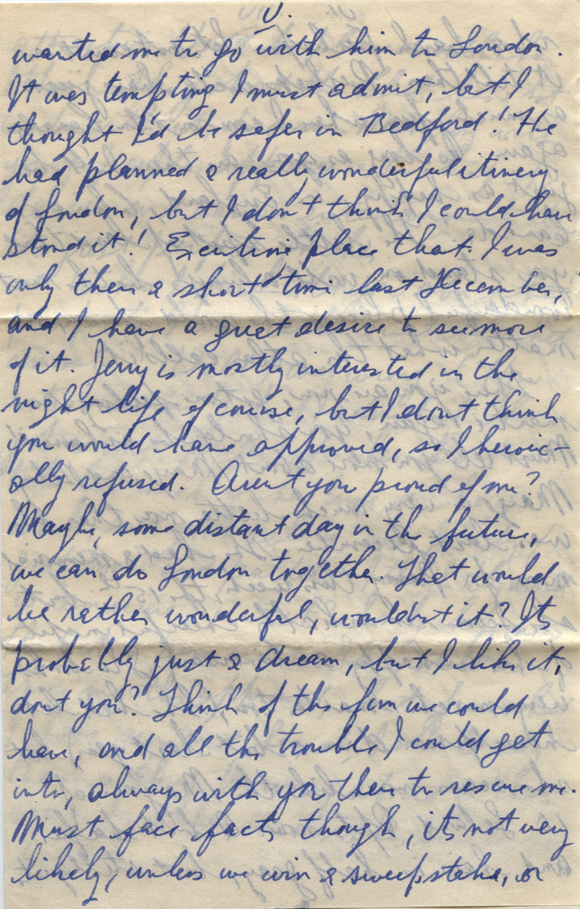 V.
wanted me to go with him to London.
It was tempting I must admit, but I
thought I'd be safer in Bedford! He
had planned a really wonderful itinery
of London, but I don't think I could have
stood it! Exciting place that. I was
only there a short time last December,
and I have a great desire to see more
of it. Jerry is mostly interested in the
night life of course, but I dont think
you would have approved, so I heroic-
ally refused. Arent you proud of me?
Maybe, some distant day in the future,
we can do London together. That would
be rather wonderful, wouldnt it? Its
probably just a dream, but I like it,
dont you? Think of the fun we could
have, and all the trouble I could get
into, always with you there to rescue me.
Must face facts though, its not very
likely, unless we win a sweepstake, or